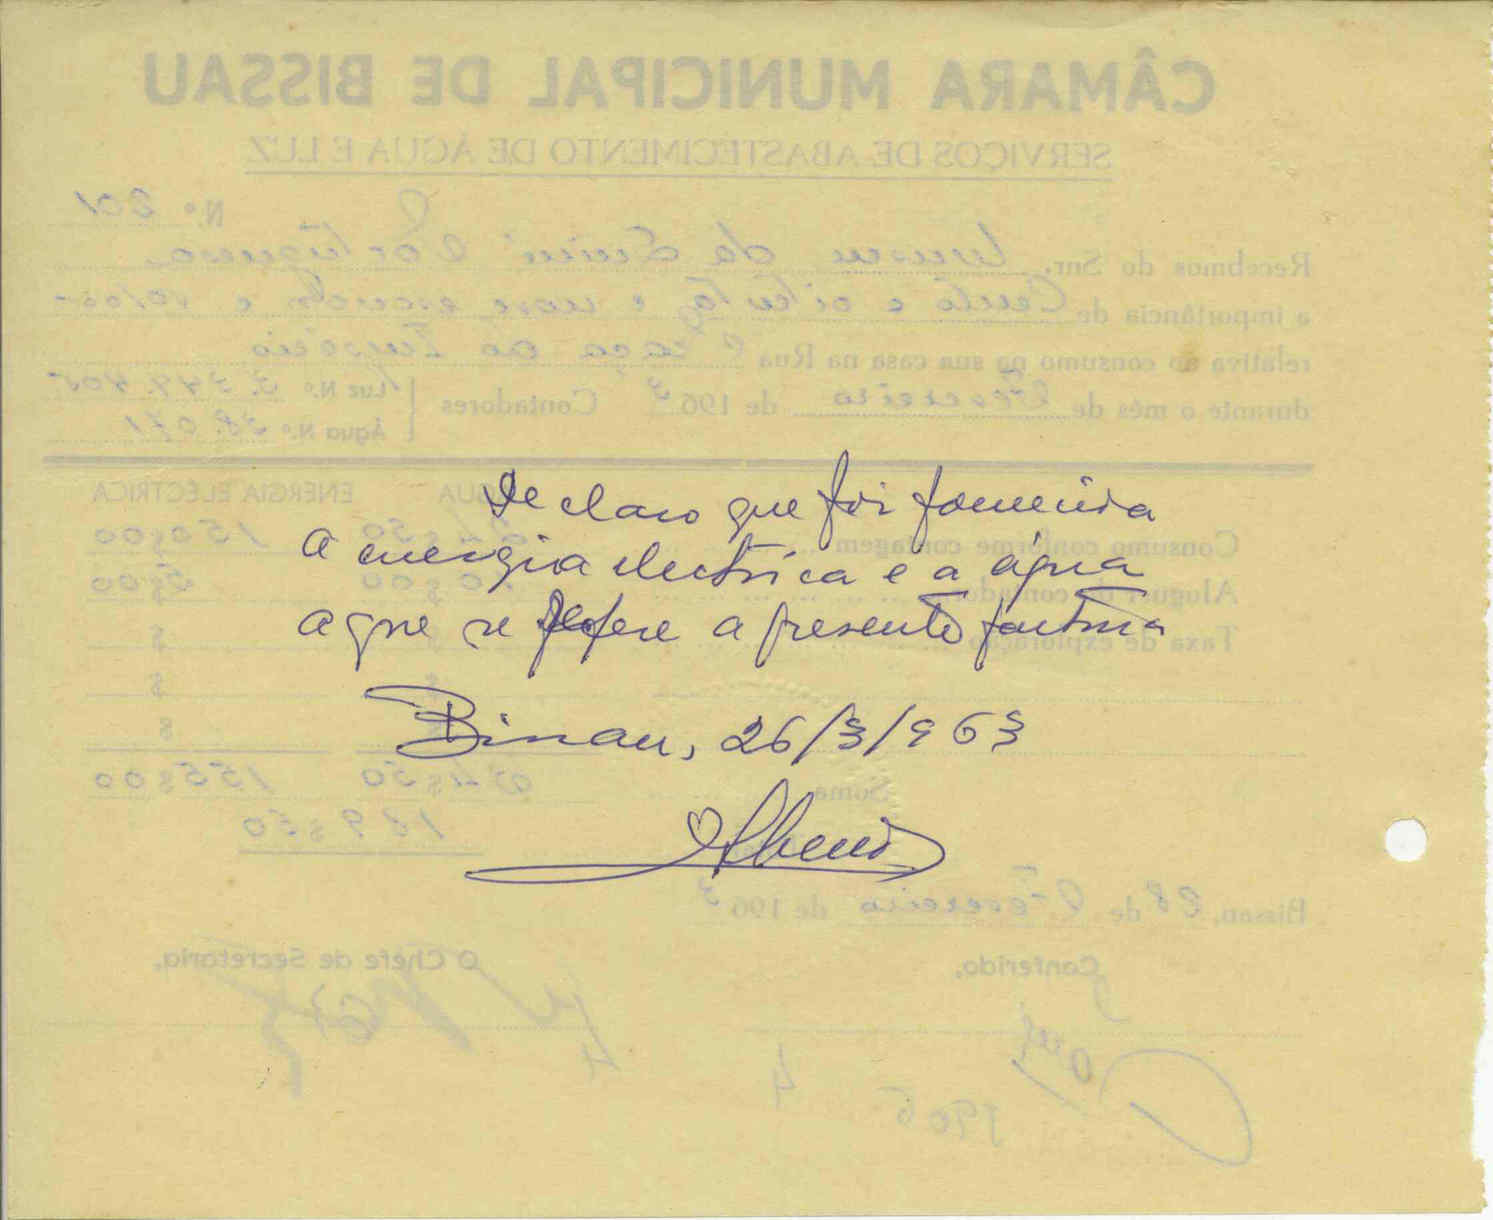 Declaro que foi fornecida
a energia electrica e a água
a que se refere a presente factura
Bissau, 26/3/963
CÂMARA MUNICIPAL DE BISSAU
SERVIÇOS DE ABASTECIMENTO DE ÁGUA E LUZ
N.º 201
Recebemos do Snr. da Guiné Portuguesa
a importância de Cento e oitenta e nove escudos e 50/00
relativa ao consumo na sua casa na Rua Praça do Império
durante o mês de Fevereiro de 1963 Contadores Luz N.º
Água N.º
ÁGUA ENERGIA ELÉCTRICA
Consumo conforme contagem 150$00
Aluguer do contador 5$00
Taxa de exploração $ $
$ $
$
Soma 155$00
189$50
Bissau, 28 de Fevereiro de 1963
Conferido, O Chefe de Secretaria,